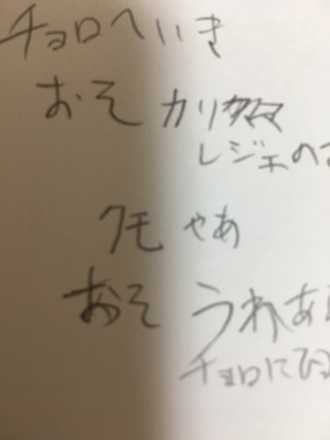 チョロへいき
おそ カリ
レジェ
クモ やあ
おそ うわあ
チョロに